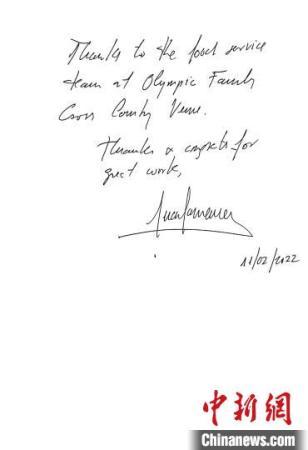 Thanks to the food service
team at Olympic Family
Cross County Venue.
Thanks & congrats for
great work,
11/02/2022
中新網
Chinanews.com